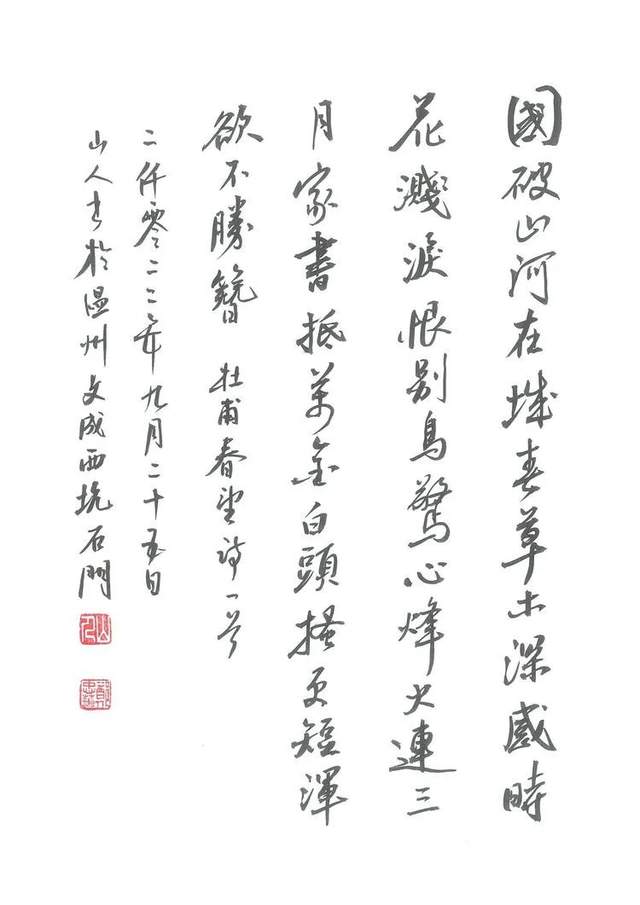 國破山河在城春草木深感時
花濺淚恨別鳥驚心烽火連三
月家書抵萬金白頭搔更短渾
欲不勝簪 杜甫春望詩一首
二仟零二二年九月二十五日
山人书於温州文成西坑石門